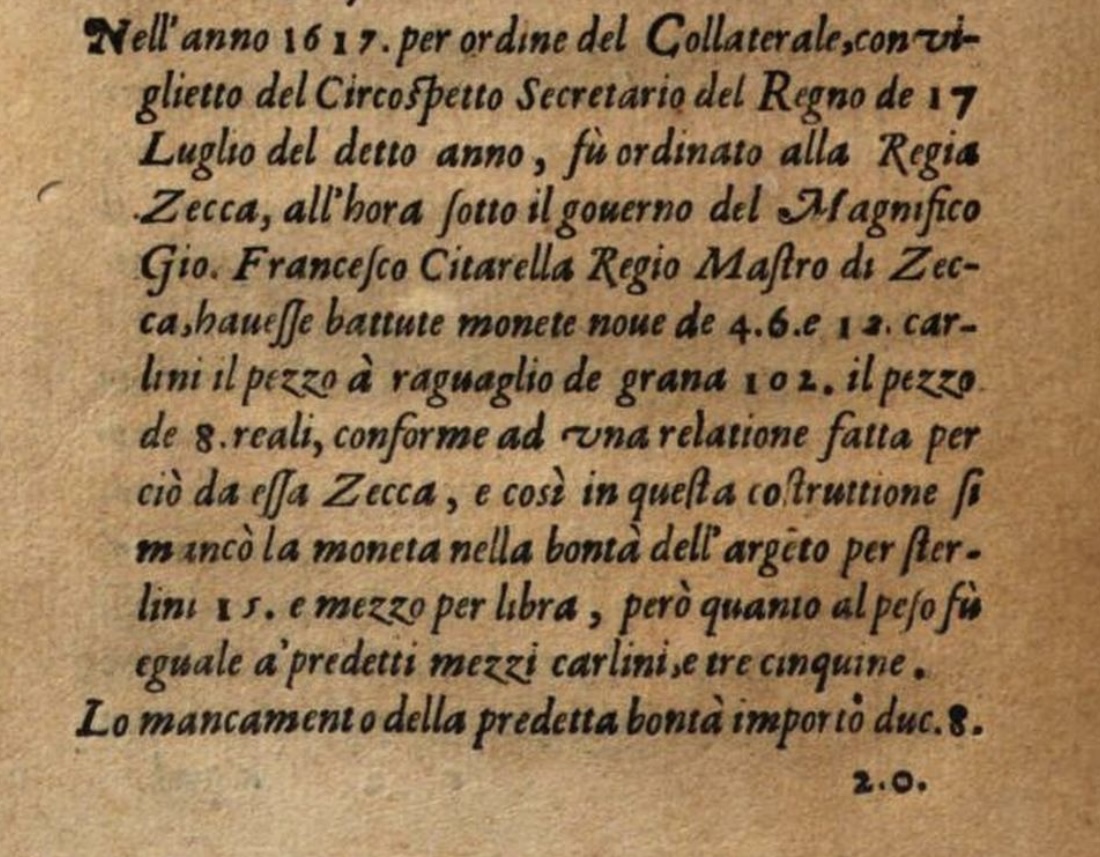 Nell'anno 1617. per ordine del Collaterale, con vi-
glietto del Circoſpetto Secretario del Regno de 17
Luglio del detto anno, fù ordinato alla Regia
Zecca, all'hora ſotto il gouerno del Magnifico
Gio. Franceſco Citarella Regio Maſtro di Zec-
ca, haueſſe battute monete noue de 4.6.e 12. car-
lini il pezzo à raguaglio de grana 102. il pezzo
de 8. reali, conforme ad vna relatione fatta per
ciò da eſſa Zecca, e così in queſta coſtruttione ſi
mancò la moneta nella bontà dell'argẽto per ſter-
lini 15. e mezzo per libra, però quanto al peſo fù
eguale a' predetti mezzi carlini, e tre cinquine.
Lo mancamento della predetta bontà importò duc. 8.
2.0.